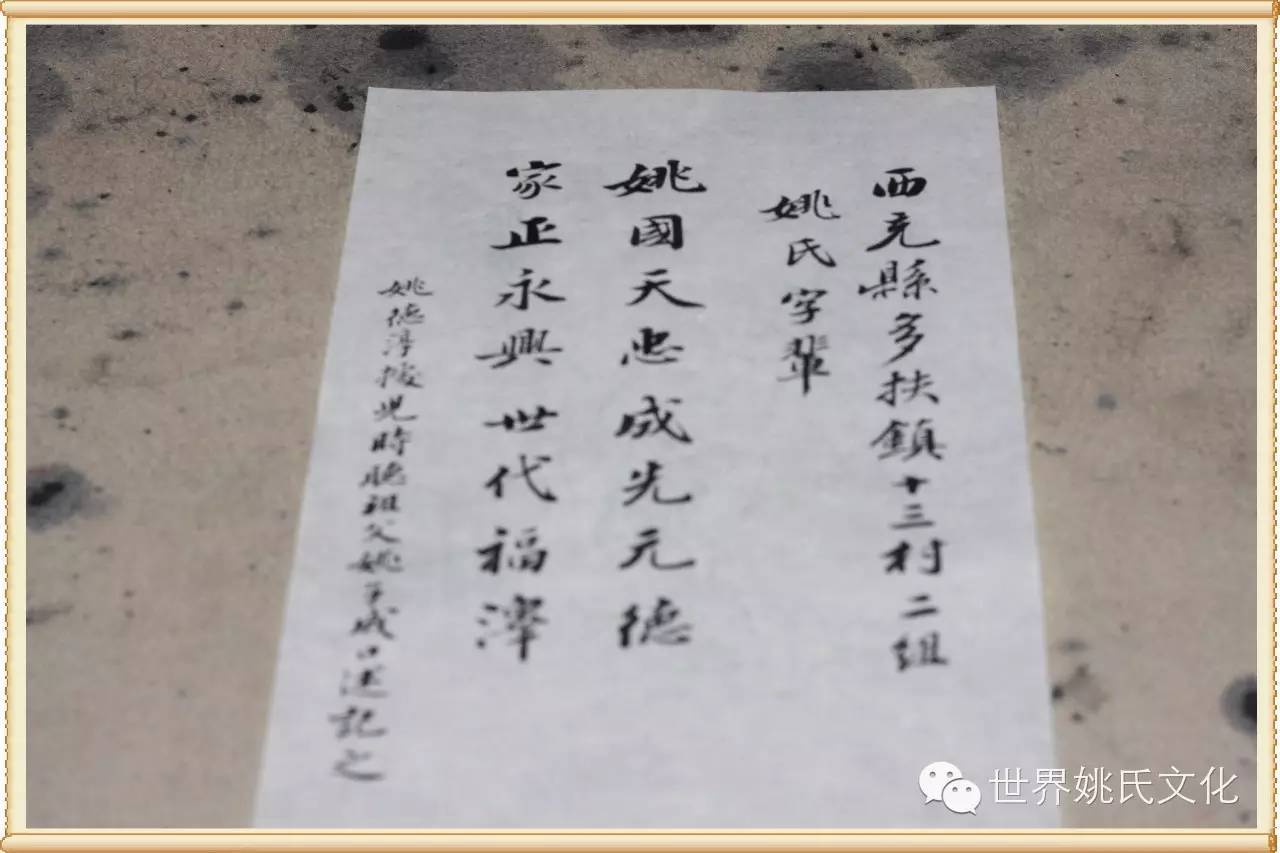 西充縣多扶鎮十三村二組
姚氏字輩
姚國天忠成先元德
家正永興世代福澤
姚德淳據兒時聽祖父姚成口述記之
世界姚氏文化